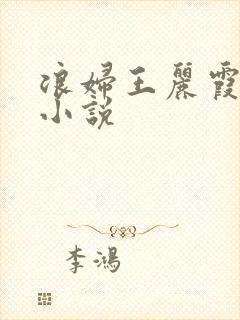 浪婦王麗霞
小說
李鴻